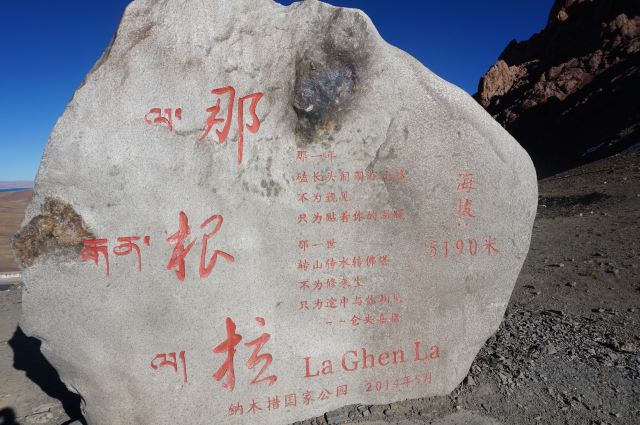 ལ།
那
根
ལ།
拉
那一年
磕长头匍匐在山路
不为觐见
只为贴着你的温暖
那一世
转山转水转佛塔
不为修来生
只为途中与你相见
--仓央嘉措
海拔:
5190米
La Ghen La
纳木措国家公园 2014年5月